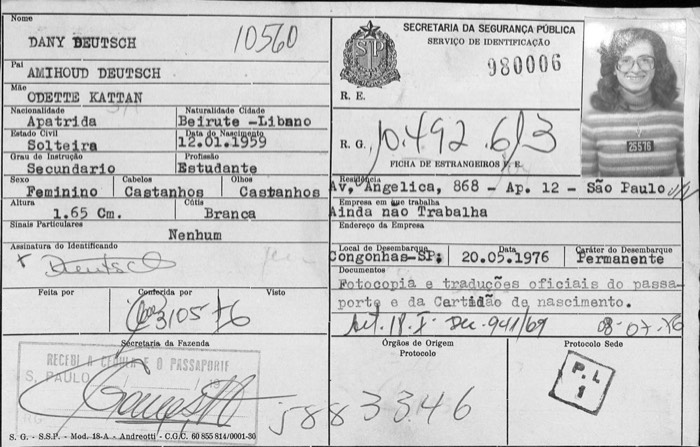 Nome
DANY DEUTSCH
10560
Pai
AMIHOUD DEUTSCH
Mãe
ODETTE KATTAN
Nacionalidade
Apatrida
Naturalidade Cidade
Beirute -Libano
Estado Civil
Solteira
Data do Nascimento
12.01.1959
Grau de Instrução
Secundario
Profissão
Estudante
Sexo
Feminino
Cabelos
Castanhos
Olhos
Castanhos
Altura
1.65 Cm.
Cútis
Branca
Sinais Particulares
Nenhum
Assinatura do Identificando
x Deutsch
Feita por
Conferida por
Visto
31/05/76
Secretaria da Fazenda
RECEBI A CÉDULA E O PASSAPORTE
S. PAULO
RG
S. G. - S.S.P. - Mod. 18-A - Andreotti - C.G.C. 60 855 814/0001-30
5883346
SECRETARIA DA SEGURANÇA PÚBLICA
SERVIÇO DE IDENTIFICAÇÃO
SP
980006
R. E.
R. G. 10.492.613
FICHA DE ESTRANGEIROS P. E.
25576
Residência
Av, Angelica, 868 - Ap. 12 - São Paulo
Empresa em que trabalha
Ainda nao Trabalha
Endereço da Empresa
Local de Desembarque
Congonhas-SP;
Data
20.05.1976
Caráter do Desembarque
Permanente
Documentos
Fotocopia e traduções oficiais do passa-
porte e da Cartidão de nascimento.
Art. 18. I- Dec. 941/69
08-07-76
Órgãos de Origem
Protocolo
Protocolo Sede
P. L
1